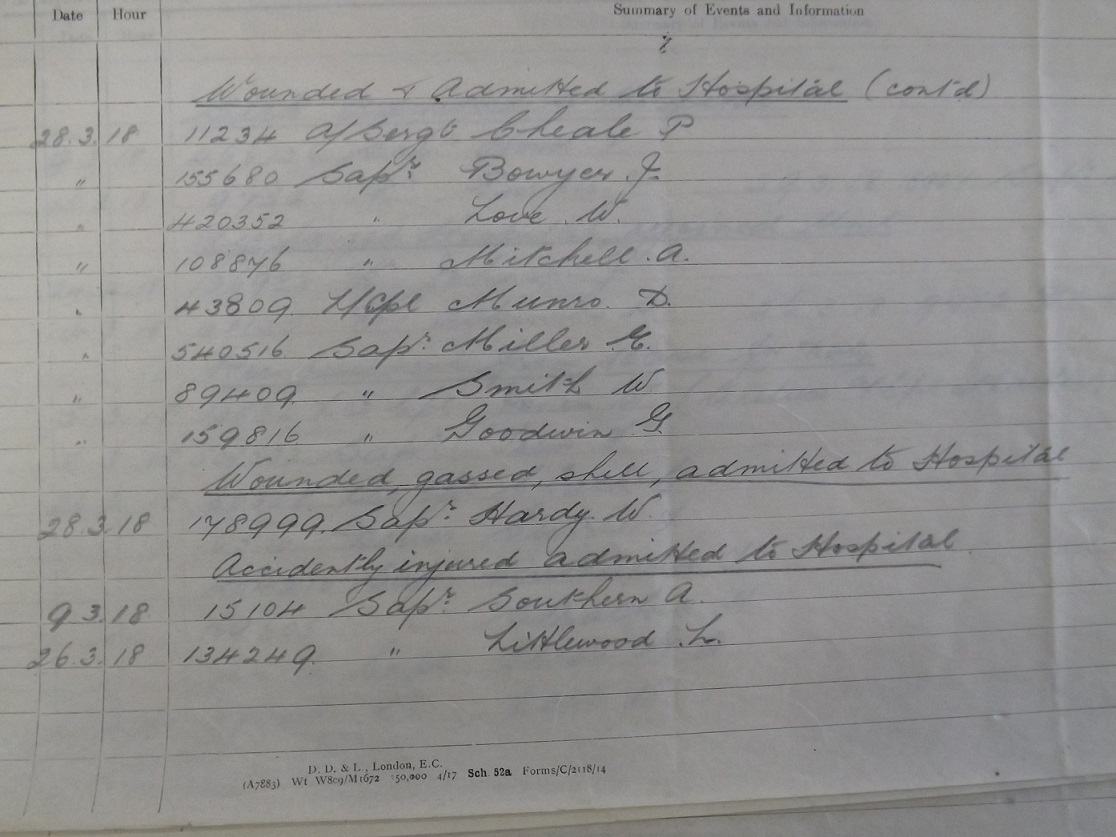 Date Hour Summary of Events and Information
Wounded & Admitted to Hospital (cont'd)
28.3.18 11234 a/Sergt Cheale P
" 155680 Sapr. Bowyer J.
" 420352 " Love W.
" 108876 " Mitchell A.
" 43809 Munro D.
" 540516 Sapr. Miller G.
" 89409 " Smith W
" 159816 " Goodwin G.
Wounded, gassed, shell, admitted to Hospital
28.3.18 178999 Sapr. Hardy W.
Accidently injured admitted to Hospital
9.3.18 15104 Sapr. Southern A.
26.3.18 134249 " Littlewood L.
D. D. & L., London, E.C.
(A7883) Wt W809/M1672 350,000 4/17 Sch. 52a Forms/C/2118/14